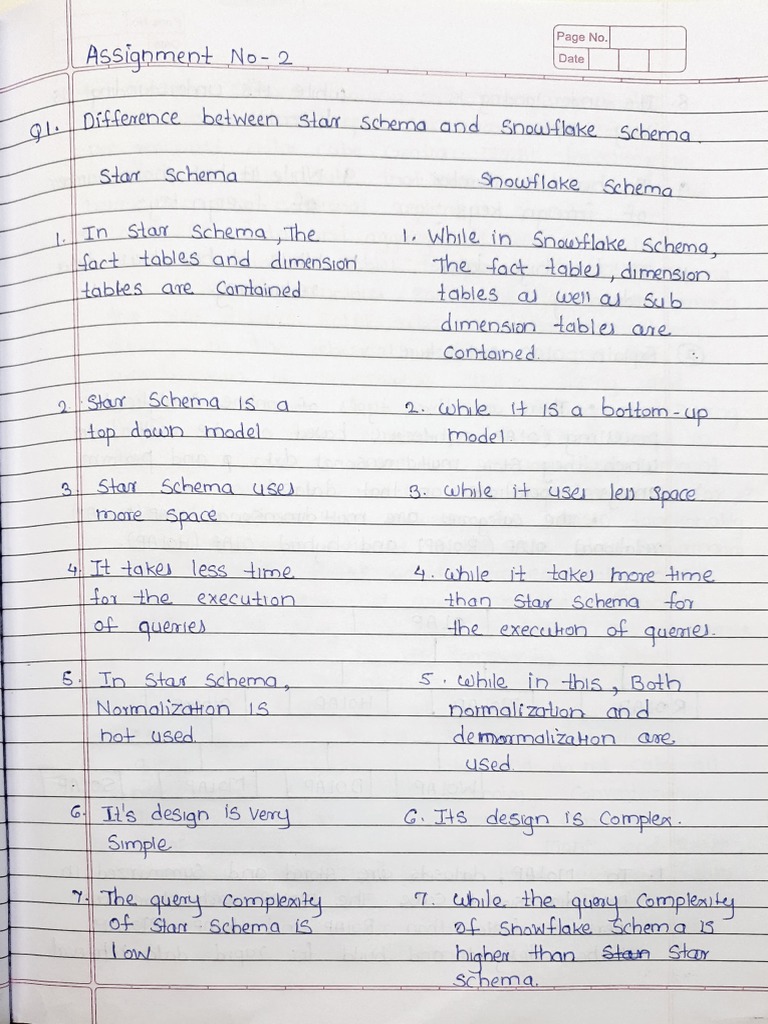 Page No.
Date
Assignment No-2
Q1. Difference between star schema and snowflake schema.
Star Schema
Snowflake Schema
1. In Star Schema, The
fact tables and dimension
tables are contained
1. While in Snowflake Schema,
The fact tables, dimension
tables as well as sub
dimension tables are
contained.
2. Star Schema is a
top down model
2. while it is a bottom-up
model
3. Star Schema uses
more space
3. while it uses less space
4. It takes less time
for the execution
of queries
4. while it takes more time
than star schema for
the execution of queries.
5. In Star Schema,
Normalization is
not used.
5. while in this, Both
normalization and
denormalization are
used.
6. It's design is very
Simple
6. Its design is complex.
7. The query complexity
of star schema is
low
7. while the query complexity
of snowflake schema is
higher than Star Star
schema.